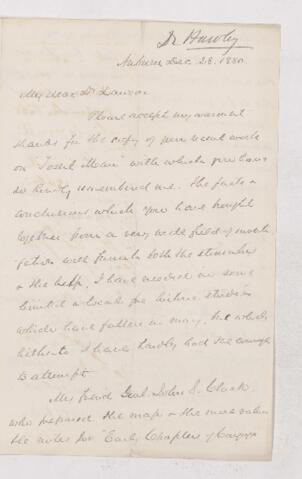 Dr Hawley
Auburn Dec. 28. 1880.
My dear Dr Dawson
Please accept my warmest
thanks for the copy of your recent work
on "Fossil Men" with which you have
so kindly remembered me. The facts &
conclusions which you have brought
together from a very wide field of
will furnish both the stimulus
& the help, I have needed in some
limited & local pre historic studies
which have fallen in my, & which
hitherto I have hardly had the courage
to attempt.
My friend Genl. John S. Clark,
who prepared the map & the more
the notes for "Early Chapters of Cayuga